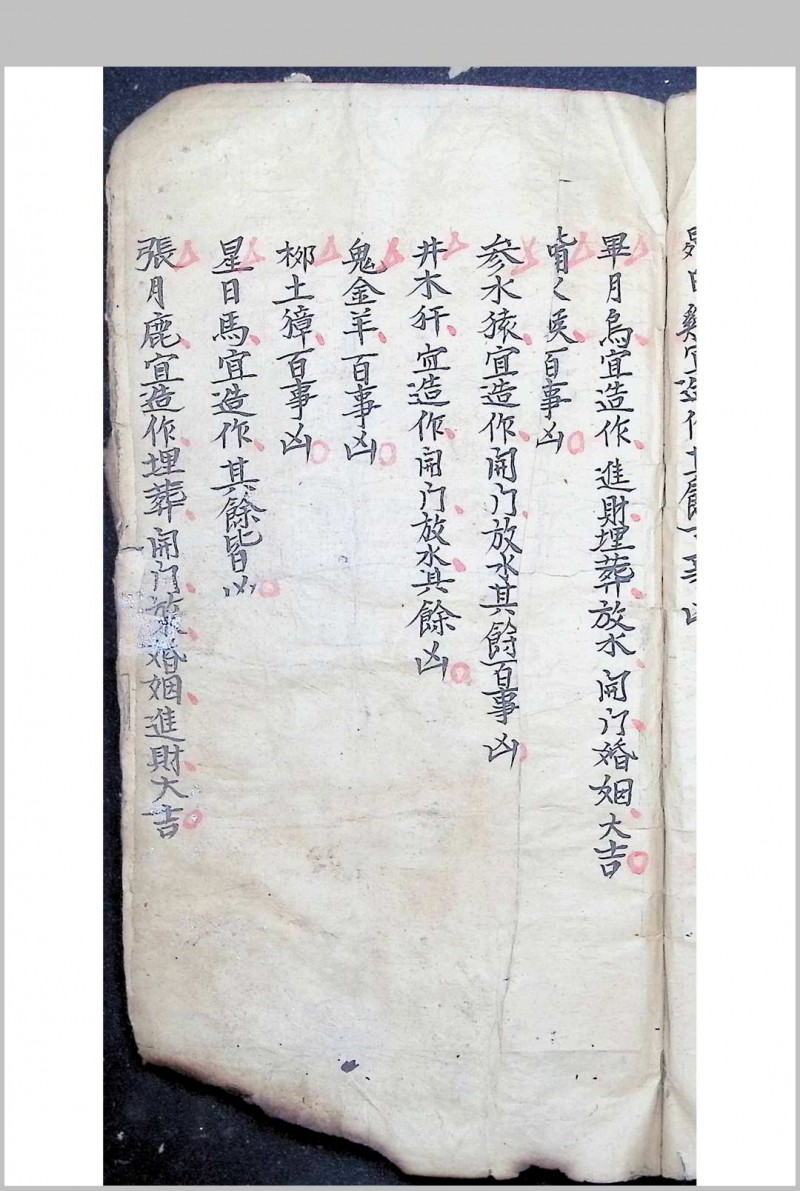 昴日雞宜造作其餘百事凶
畢月烏宜造作進財埋葬放水開门婚姻大吉
觜火猴百事凶
参水猿宜造作開门放水其餘百事凶
井木犴宜造作開门放水其餘凶
鬼金羊百事凶
柳土獐百事凶
星日馬宜造作其餘皆凶
張月鹿宜造作埋葬開门放水婚姻進財大吉